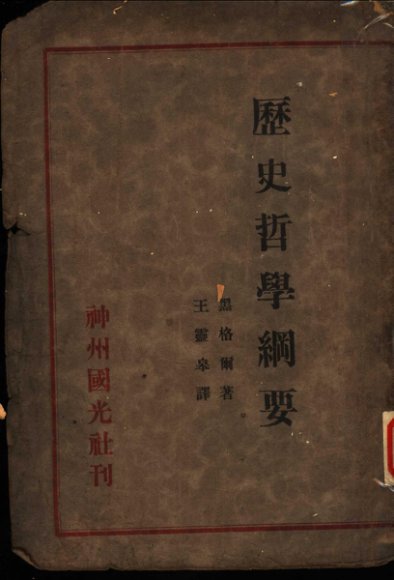 歷史哲學綱要
黑格爾著
王靈皋譯
神州國光社刊